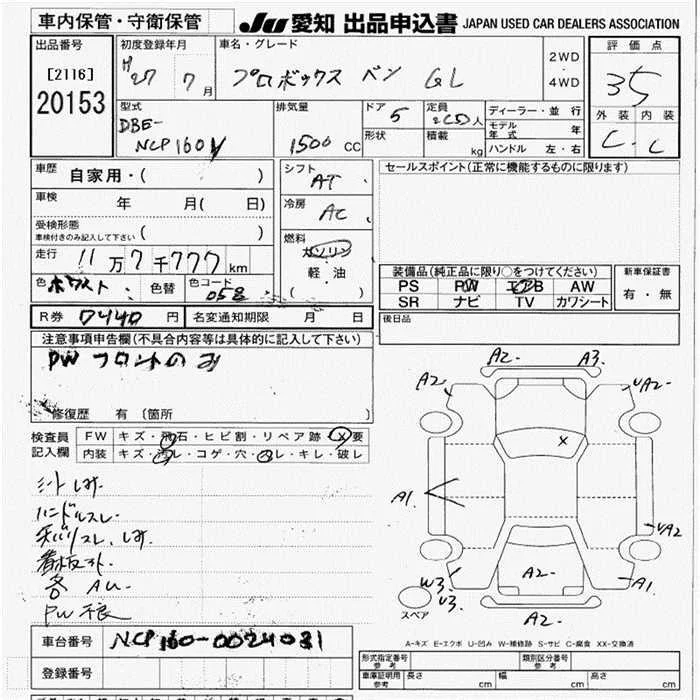 車内保管・守衛保管
JU 愛知 出品申込書 JAPAN USED CAR DEALERS ASSOCIATION
出品番号
[2116]
20153
初度登録年月
H 27 7 月
車名・グレード
プロボックス バン GL
2WD
・
4WD
評価点
35
外装 内装
C. C
型式
DBE-
NCP160V
排気量
1500 CC
ドア
5
形状
定員
2(5)人
積載
kg
ディーラー・並行
モデル年式 年
ハンドル 左・右
車歴
自家用・( )
車検
年 月( 日)
受検形態
車検付きのみ記入して下さい ( )
走行 11万7千777km
色 ホワイト 色替 色コード 058
シフト
AT
冷房
AC
燃料
ガソリン
軽・油
( )
セールスポイント(正常に機能するものに限ります)
装備品(純正品に限り○をつけてください)
PS PW エアB AW
SR ナビ TV カワシート
新車保証書
有・無
後日品
R券 7440 円 名変通知期限 月 日
注意事項申告欄(不具合内容等は具体的に記入して下さい)
PW フロントのみ
修復歴 有〔箇所 〕
検査員
記入欄
FW キズ・飛石・ヒビ割・リペア跡・X要
内装 キズ・汚レ・コゲ・穴・スレ・キレ・破レ
シートしみ
ハンドルスレ
天バリスレ、しみ
看板跡
各 AU
PW不良
A2 A3
A2 UA2
X
A1
UA2
W3
U3
A2
A1
A2
スペア
A-キズ E-エクボ U-凹み W-補修跡 S-サビ C-腐食 XX-交換済
車台番号 NCP160-0024031
登録番号
形式指定番号
参考
類別区分番号
参考
車庫証明用
参考
長さ cm 幅 cm 高さ cm